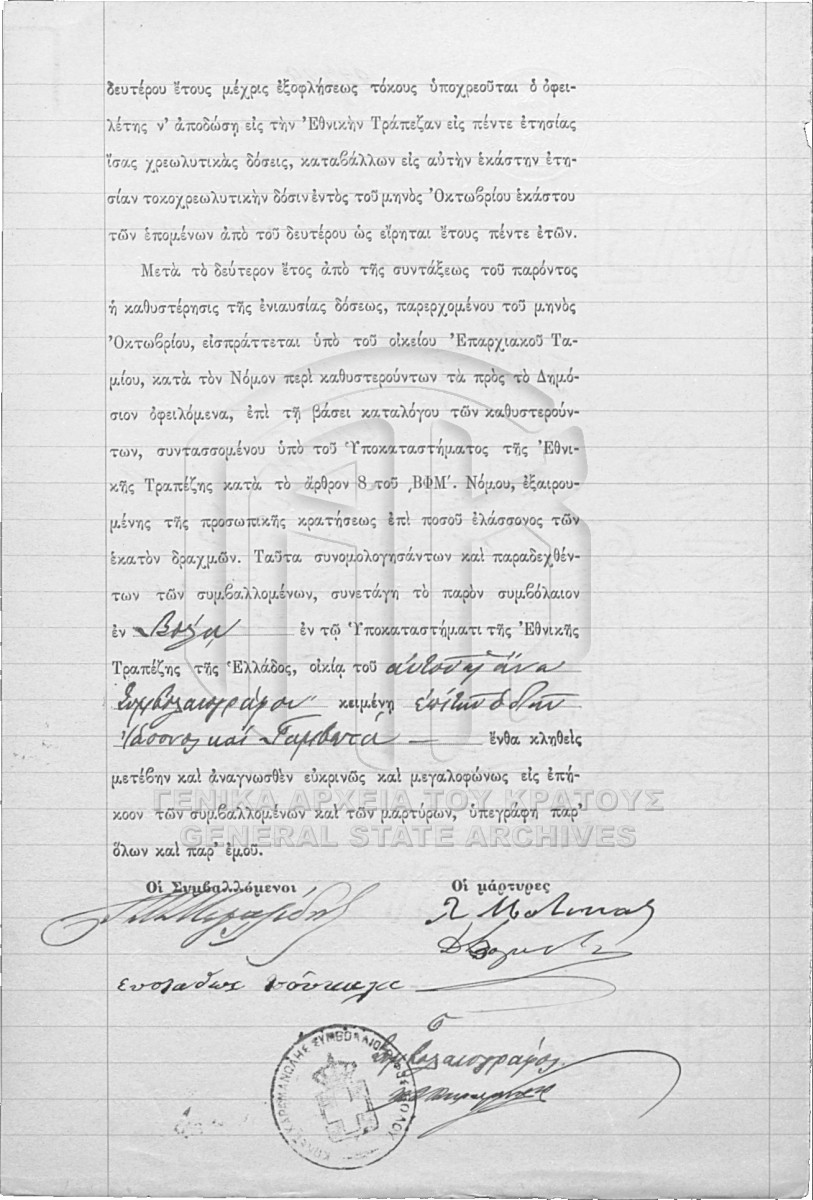 δευτέρου ἔτους μέχρις ἐξοφλήσεως τόκους ὑποχρεοῦται ὁ ὀφει-
λέτης ν' ἀποδώσῃ εἰς τὴν Ἐθνικὴν Τράπεζαν εἰς πέντε ἐτησίας
ἴσας χρεωλυτικὰς δόσεις, καταβάλλων εἰς αὐτὴν ἑκάστην ἐτη-
σίαν τοκοχρεωλυτικὴν δόσιν ἐντὸς τοῦ μηνὸς Ὀκτωβρίου ἑκάστου
τῶν ἑπομένων ἀπὸ τοῦ δευτέρου ὡς εἴρηται ἔτους πέντε ἐτῶν.
Μετὰ τὸ δεύτερον ἔτος ἀπὸ τῆς συντάξεως τοῦ παρόντος
ἡ καθυστέρησις τῆς ἐνιαυσίας δόσεως, παρερχομένου τοῦ μηνὸς
Ὀκτωβρίου, εἰσπράττεται ὑπὸ τοῦ οἰκείου Ἐπαρχιακοῦ Τα-
μίου, κατὰ τὸν Νόμον περὶ καθυστερούντων τὰ πρὸς τὸ Δημό-
σιον ὀφειλόμενα, ἐπὶ τῇ βάσει καταλόγου τῶν καθυστερούν-
των, συντασσομένου ὑπὸ τοῦ Ὑποκαταστήματος τῆς Ἐθνι-
κῆς Τραπέζης κατὰ τὸ ἄρθρον 8 τοῦ ͵ΒΦΜ΄. Νόμου, ἐξαιρου-
μένης τῆς προσωπικῆς κρατήσεως ἐπὶ ποσοῦ ἐλάσσονος τῶν
ἑκατὸν δραχμῶν. Ταῦτα συνομολογησάντων καὶ παραδεχθέν-
των τῶν συμβαλλομένων, συνετάγη τὸ παρὸν συμβόλαιον
ἐν Βόλῳ ἐν τῷ Ὑποκαταστήματι τῆς Ἐθνικῆς
Τραπέζης τῆς Ἑλλάδος, οἰκίᾳ τοῦ
Συμβολαιογράφου κειμένῃ ἐπὶ τῶν ὁδῶν
Ἰάσονος καὶ Γαμβέτα ἔνθα κληθεὶς
μετέβην καὶ ἀναγνωσθὲν εὐκρινῶς καὶ μεγαλοφώνως εἰς ἐπή-
κοον τῶν συμβαλλομένων καὶ τῶν μαρτύρων, ὑπεγράφη παρ'
ὅλων καὶ παρ' ἐμοῦ.
ΓΕΝΙΚΑ ΑΡΧΕΙΑ ΤΟΥ ΚΡΑΤΟΥΣ
GENERAL STATE ARCHIVES
Οἱ Συμβαλλόμενοι Οἱ μάρτυρες
Ὁ
Συμβολαιογράφος